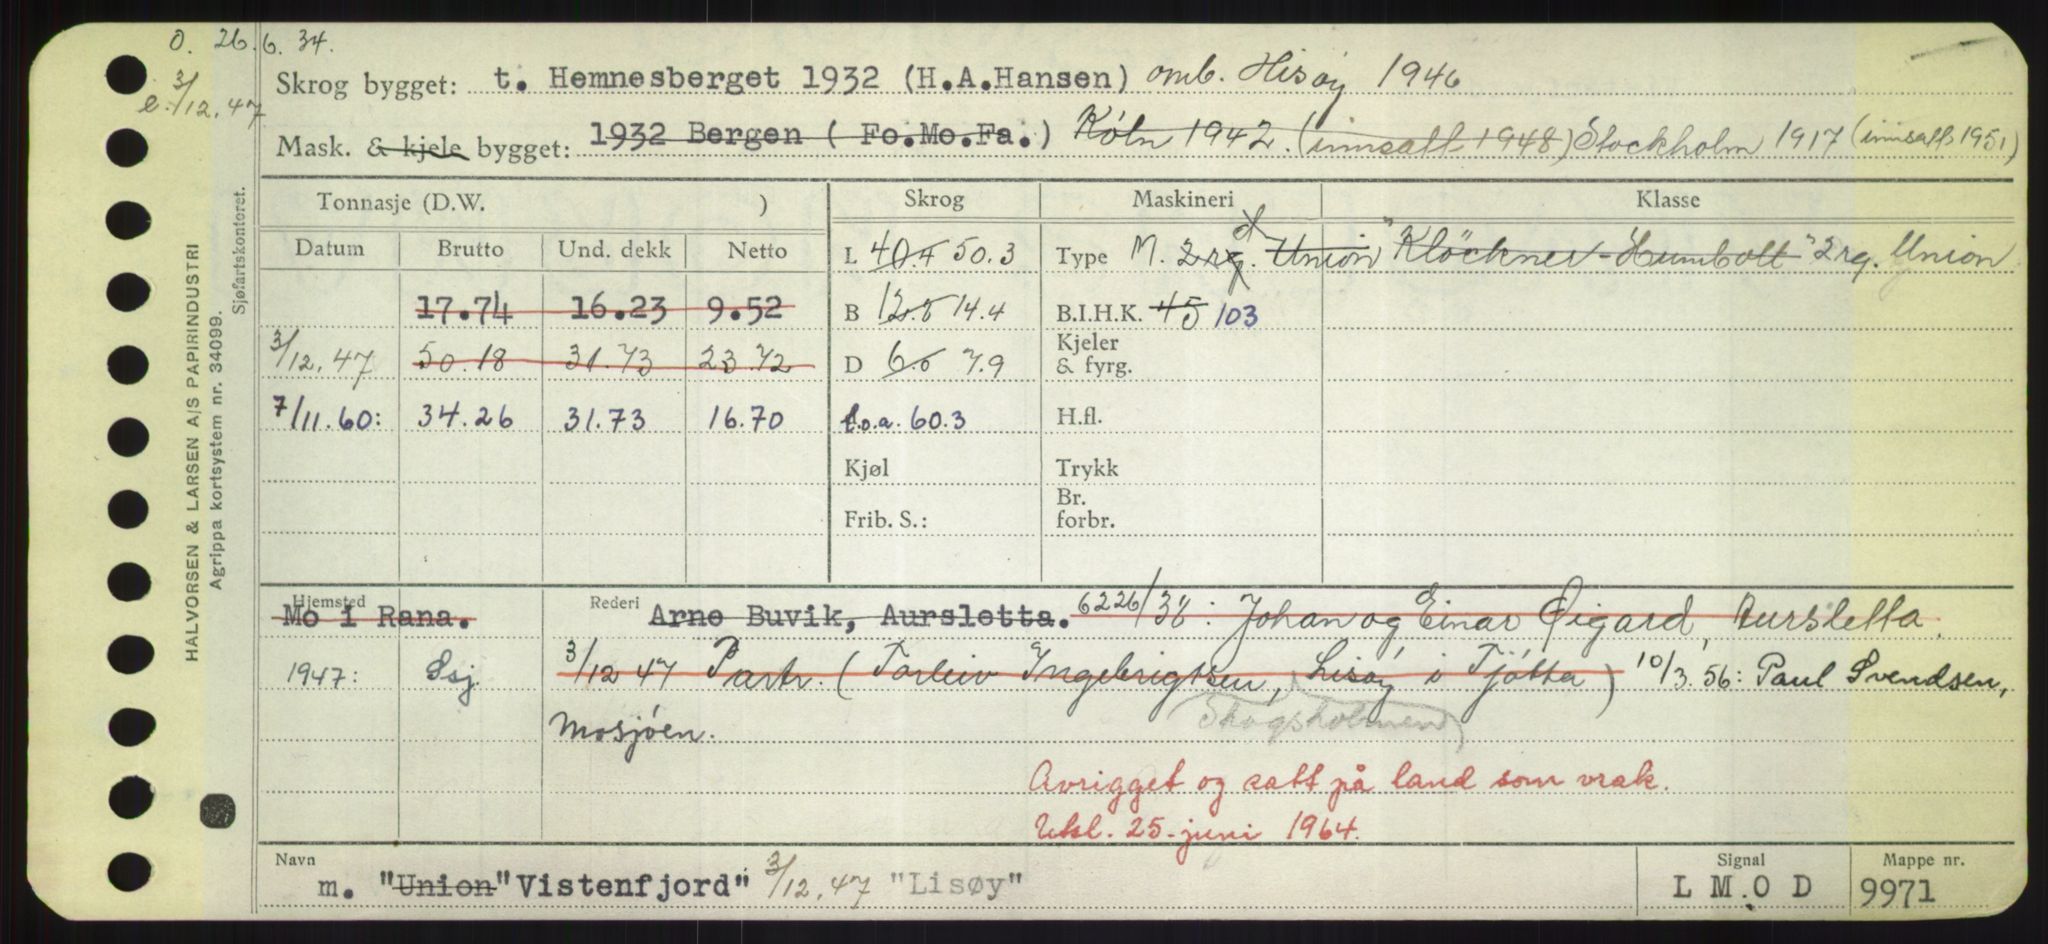 O. 26.6.34.
e. 3/12.47
Skrog bygget: t. Hemnesberget 1932 (H.A.Hansen) omb. Hisøy 1946
Mask. & kjele bygget: 1932 Bergen ( Fo.Mo.Fa.) Köln 1942. (innsatt 1948) Stockholm 1917 (innsatt 1951)
Tonnasje (D.W. ) Skrog Maskineri Klasse
Datum Brutto Und. dekk Netto L 40.4 50.3 Type M. 2 rg. Union "Klöckner-Humbolt" 2 rg. Union
17.74 16.23 9.52 B 12.6 14.4 B.I.H.K. 45 103
3/12.47 50.18 31.73 23.72 D 6.6 7.9 Kjeler
& fyrg.
7/11.60: 34.26 31.73 16.70 l.o.a. 60.3 H.fl.
Kjøl Trykk
Frib. S.: Br.
forbr.
Hjemsted Rederi
Mo i Rana. Arne Buvik, Aursletta. 6226/38: Johan og Einar Øigard, Aursletta.
1947: Ssj. 3/12 47 Partr. (Torleiv Ingebrigtsen, Lisøy i Tjøtta) 10/3.56: Paul Svendsen,
Mosjøen. Skogsholmen
Avrigget og satt på land som vrak.
Utsl. 25. juni 1964.
Navn Signal Mappe nr.
m. "Union" Vistenfjord" 3/12.47 "Lisøy" L M O D 9971
HALVORSEN & LARSEN A/S PAPIRINDUSTRI
Agrippa kortsystem nr. 34099.
Sjøfartskontoret.